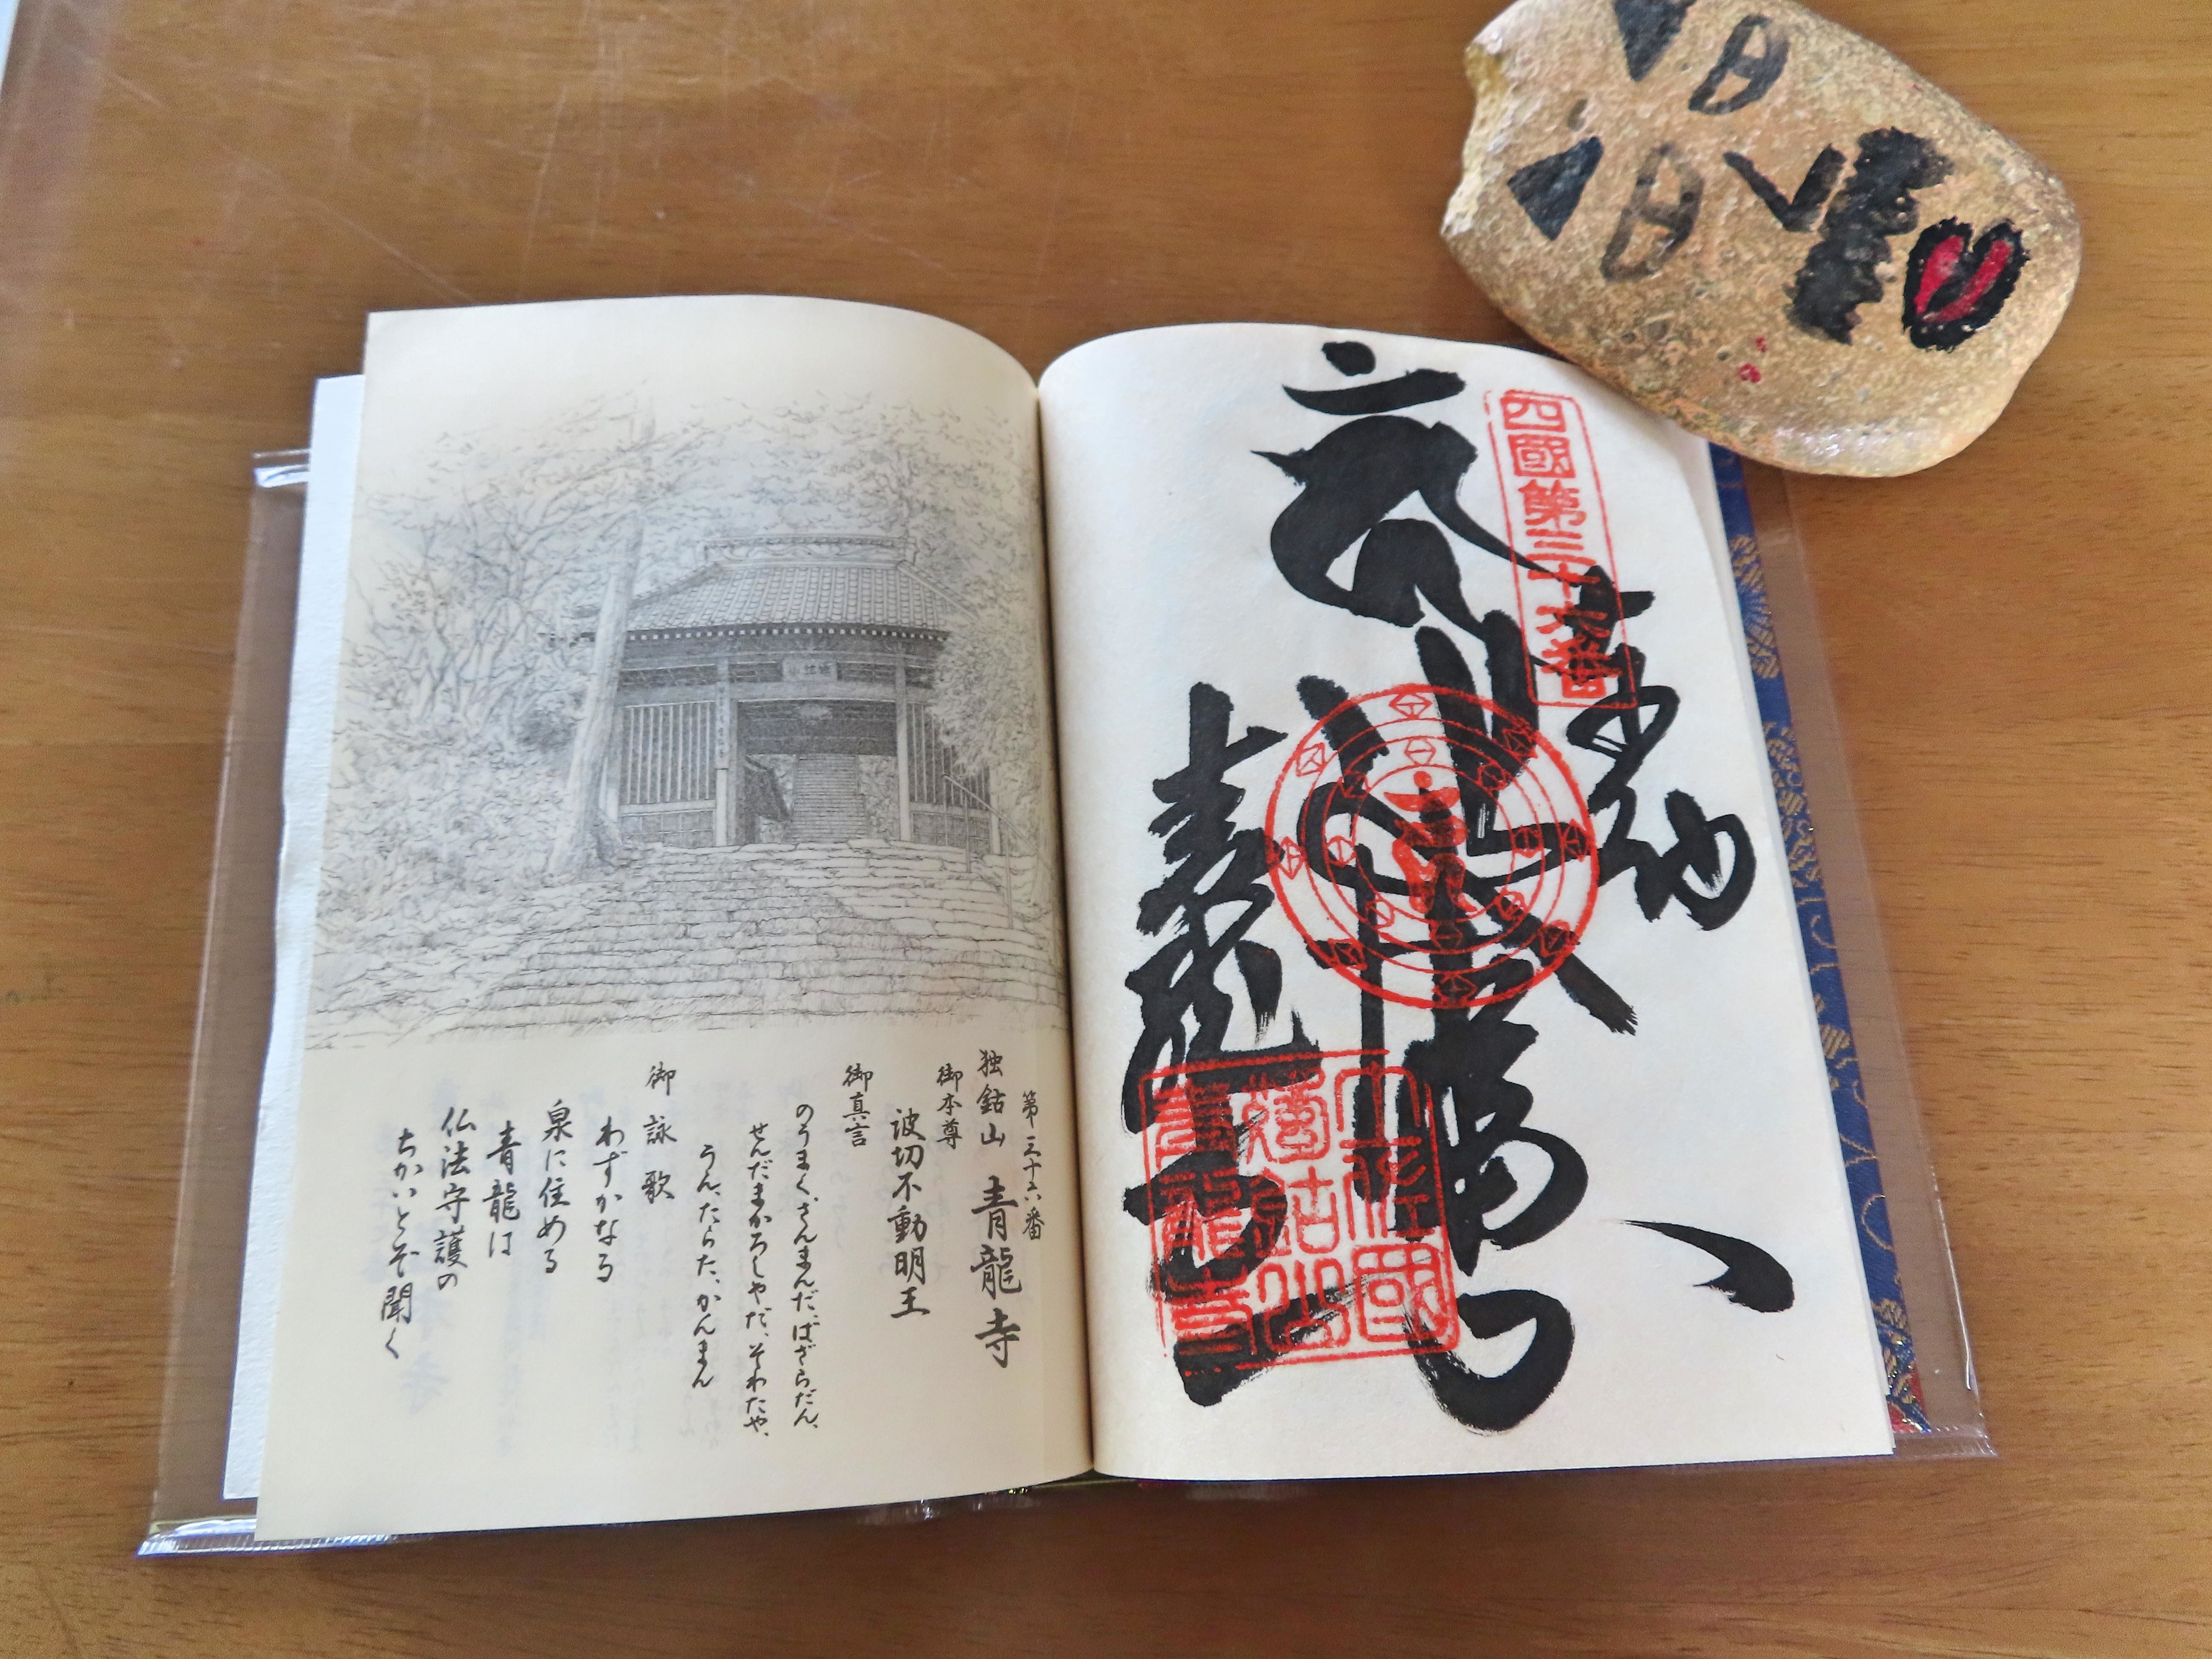 第三十六番
独鈷山 青龍寺
御本尊
波切不動明王
御真言
のうまく、さんまんだ、ばざらだん、
せんだまかろしやだ、そわたや、
うん、たらた、かんまん
御詠歌
わずかなる
泉に住める
青龍は
仏法守護の
ちかいとぞ聞く
四國第三十六番
奉納
青龍寺
獨鈷山
青龍寺